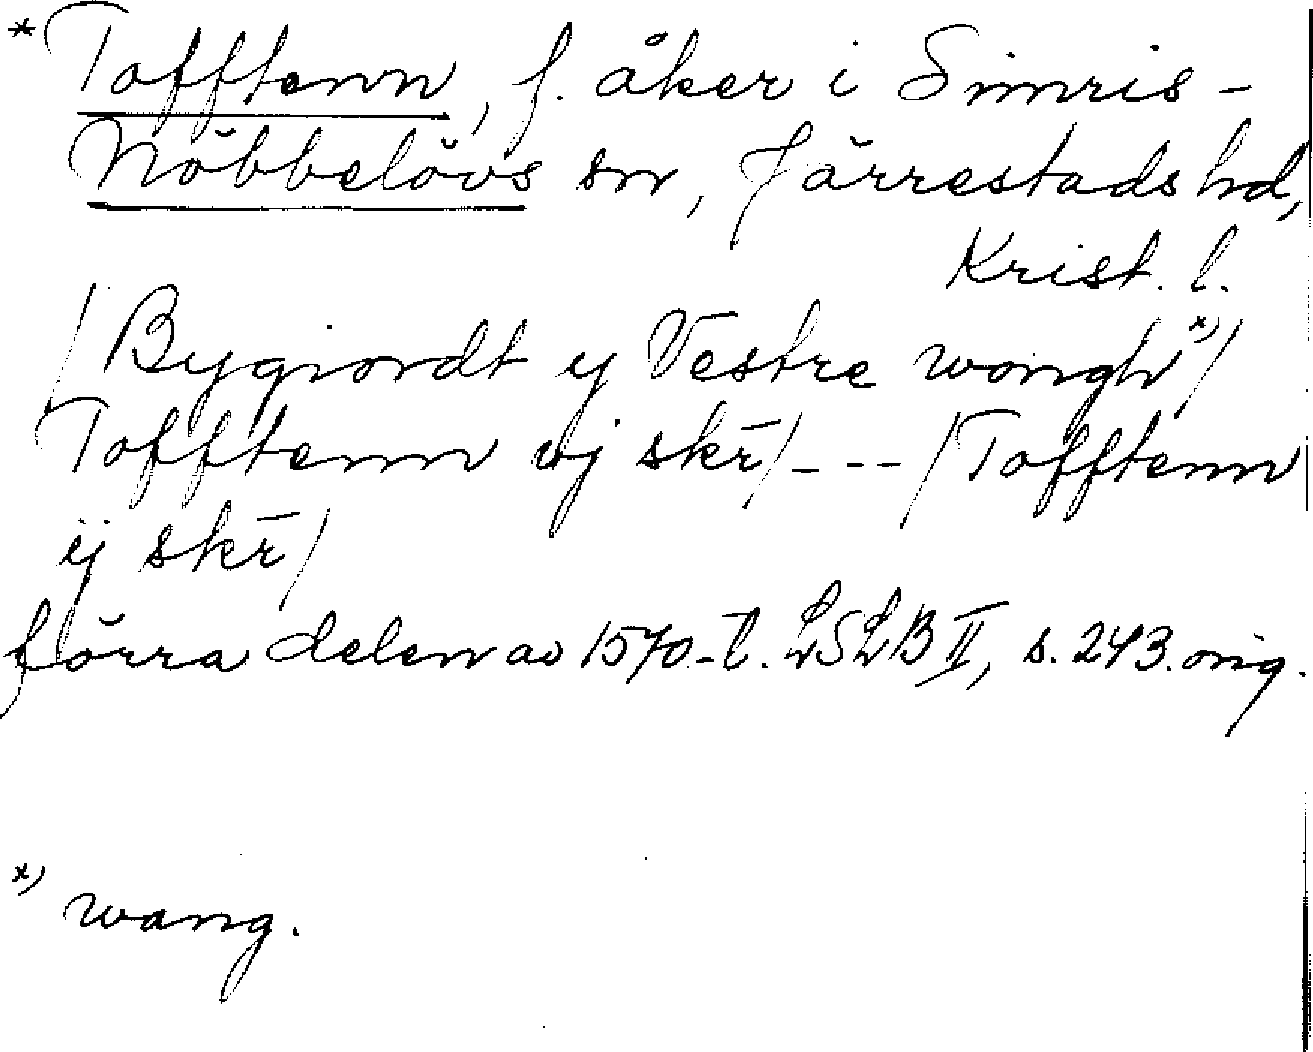 * Tofftenn, f. åker i Simris-
Nöbbelövs sn, Järrestads hd,
Krist. l.
/Bygiordt y Vestre wongh x)/
Tofftenn vj skr̄/---/Tofftenn
ij skr̄/
förra delen av 1570-t. LSLB II, s. 243. orig.
x) wang.